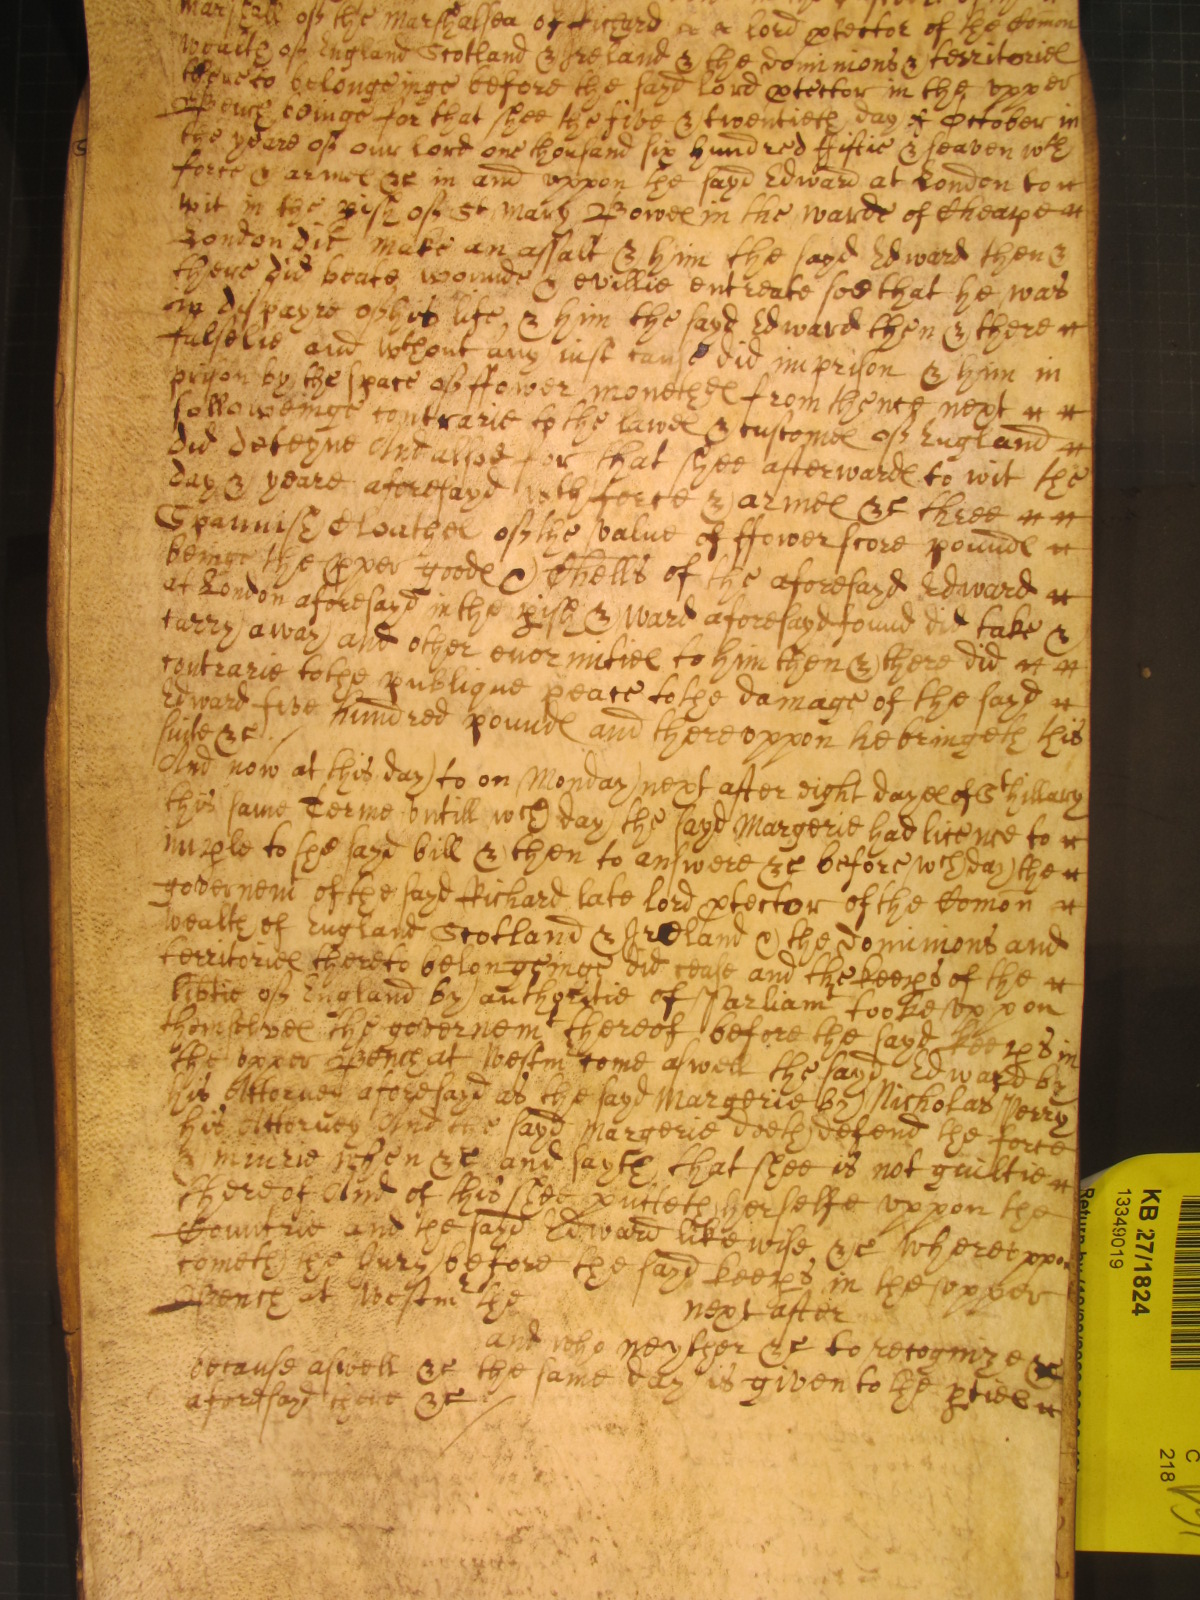 Marshall of the Marshalsea of Richard &c &c lord ptector of the Comon
wealth of England Scotland & Ireland & the dominions & territories
thereto belongeinge before the sayd lord ptector in the vpper
Bench beinge for that shee the five & twentieth day of October in
the yeare of our lord one thousand six hundred fiftie & seaven wth
force & armes &c in and vppon the sayd Edward at London to
wit in the pish of St Mary Bowes in the warde of Cheape
London did make an assalt & him the sayd Edward then &
there did beate wounde & evillie entreate soe that he was
in dispayre of his life, & him the sayd Edward then & there
falselie and wthout any iust cause did imprison & him in
prison by the space of ffower monethes from thence next
followeinge contrarie to the lawes & customes of England
did deteyne And alsoe for that shee afterwards to wit the
day & yeare aforesayd wth force & armes &c three
Spannish Cloathes of the value of ffowerscore pounds
beinge the pper goods & Chells of the aforesayd Edward
at London aforesayd in the pish & ward aforesayd found did take &
carry away and other enormities to him then & there did
contrarie to the publique peace to the damage of the sayd
Edward five hundred pounds and therevppon he bringeth this
suite &c /
And now at this day to on Monday next after eight dayes of St hillary
this same Terme vntill wch day the sayd Margerie had licence to
imple to the sayd bill & then to answere &c before wch day the
governemt of the sayd Richard late lord ptector of the Comon
wealth of England Scotland & Ireland & the dominions and
territories thereto belongeinge did cease and the keeps of the
libtie of England by authoritie of Parliamt tooke vppon
themselves the governemt thereof before the sayd keeps in
the vpper Bench at Westm come aswell the sayd Edward by
his Attorney aforesayd as the sayd Margerie by Nicholas Perry
his Attorney And the sayd Margerie doeth defend the force
& iniurie when &c and sayth that shee is not guiltie
thereof And of this shee putteth herselfe vppon the
Countrie and the sayd Edward likewise &c Wherevppon
cometh the Jury before the sayd keeps in the vpper
Bench at Westm the next after
and who neyther &c to recognize &c
because aswell &c the same day is given to the pties
aforesayd there &c /
KB 27/1824
13349019
C
218